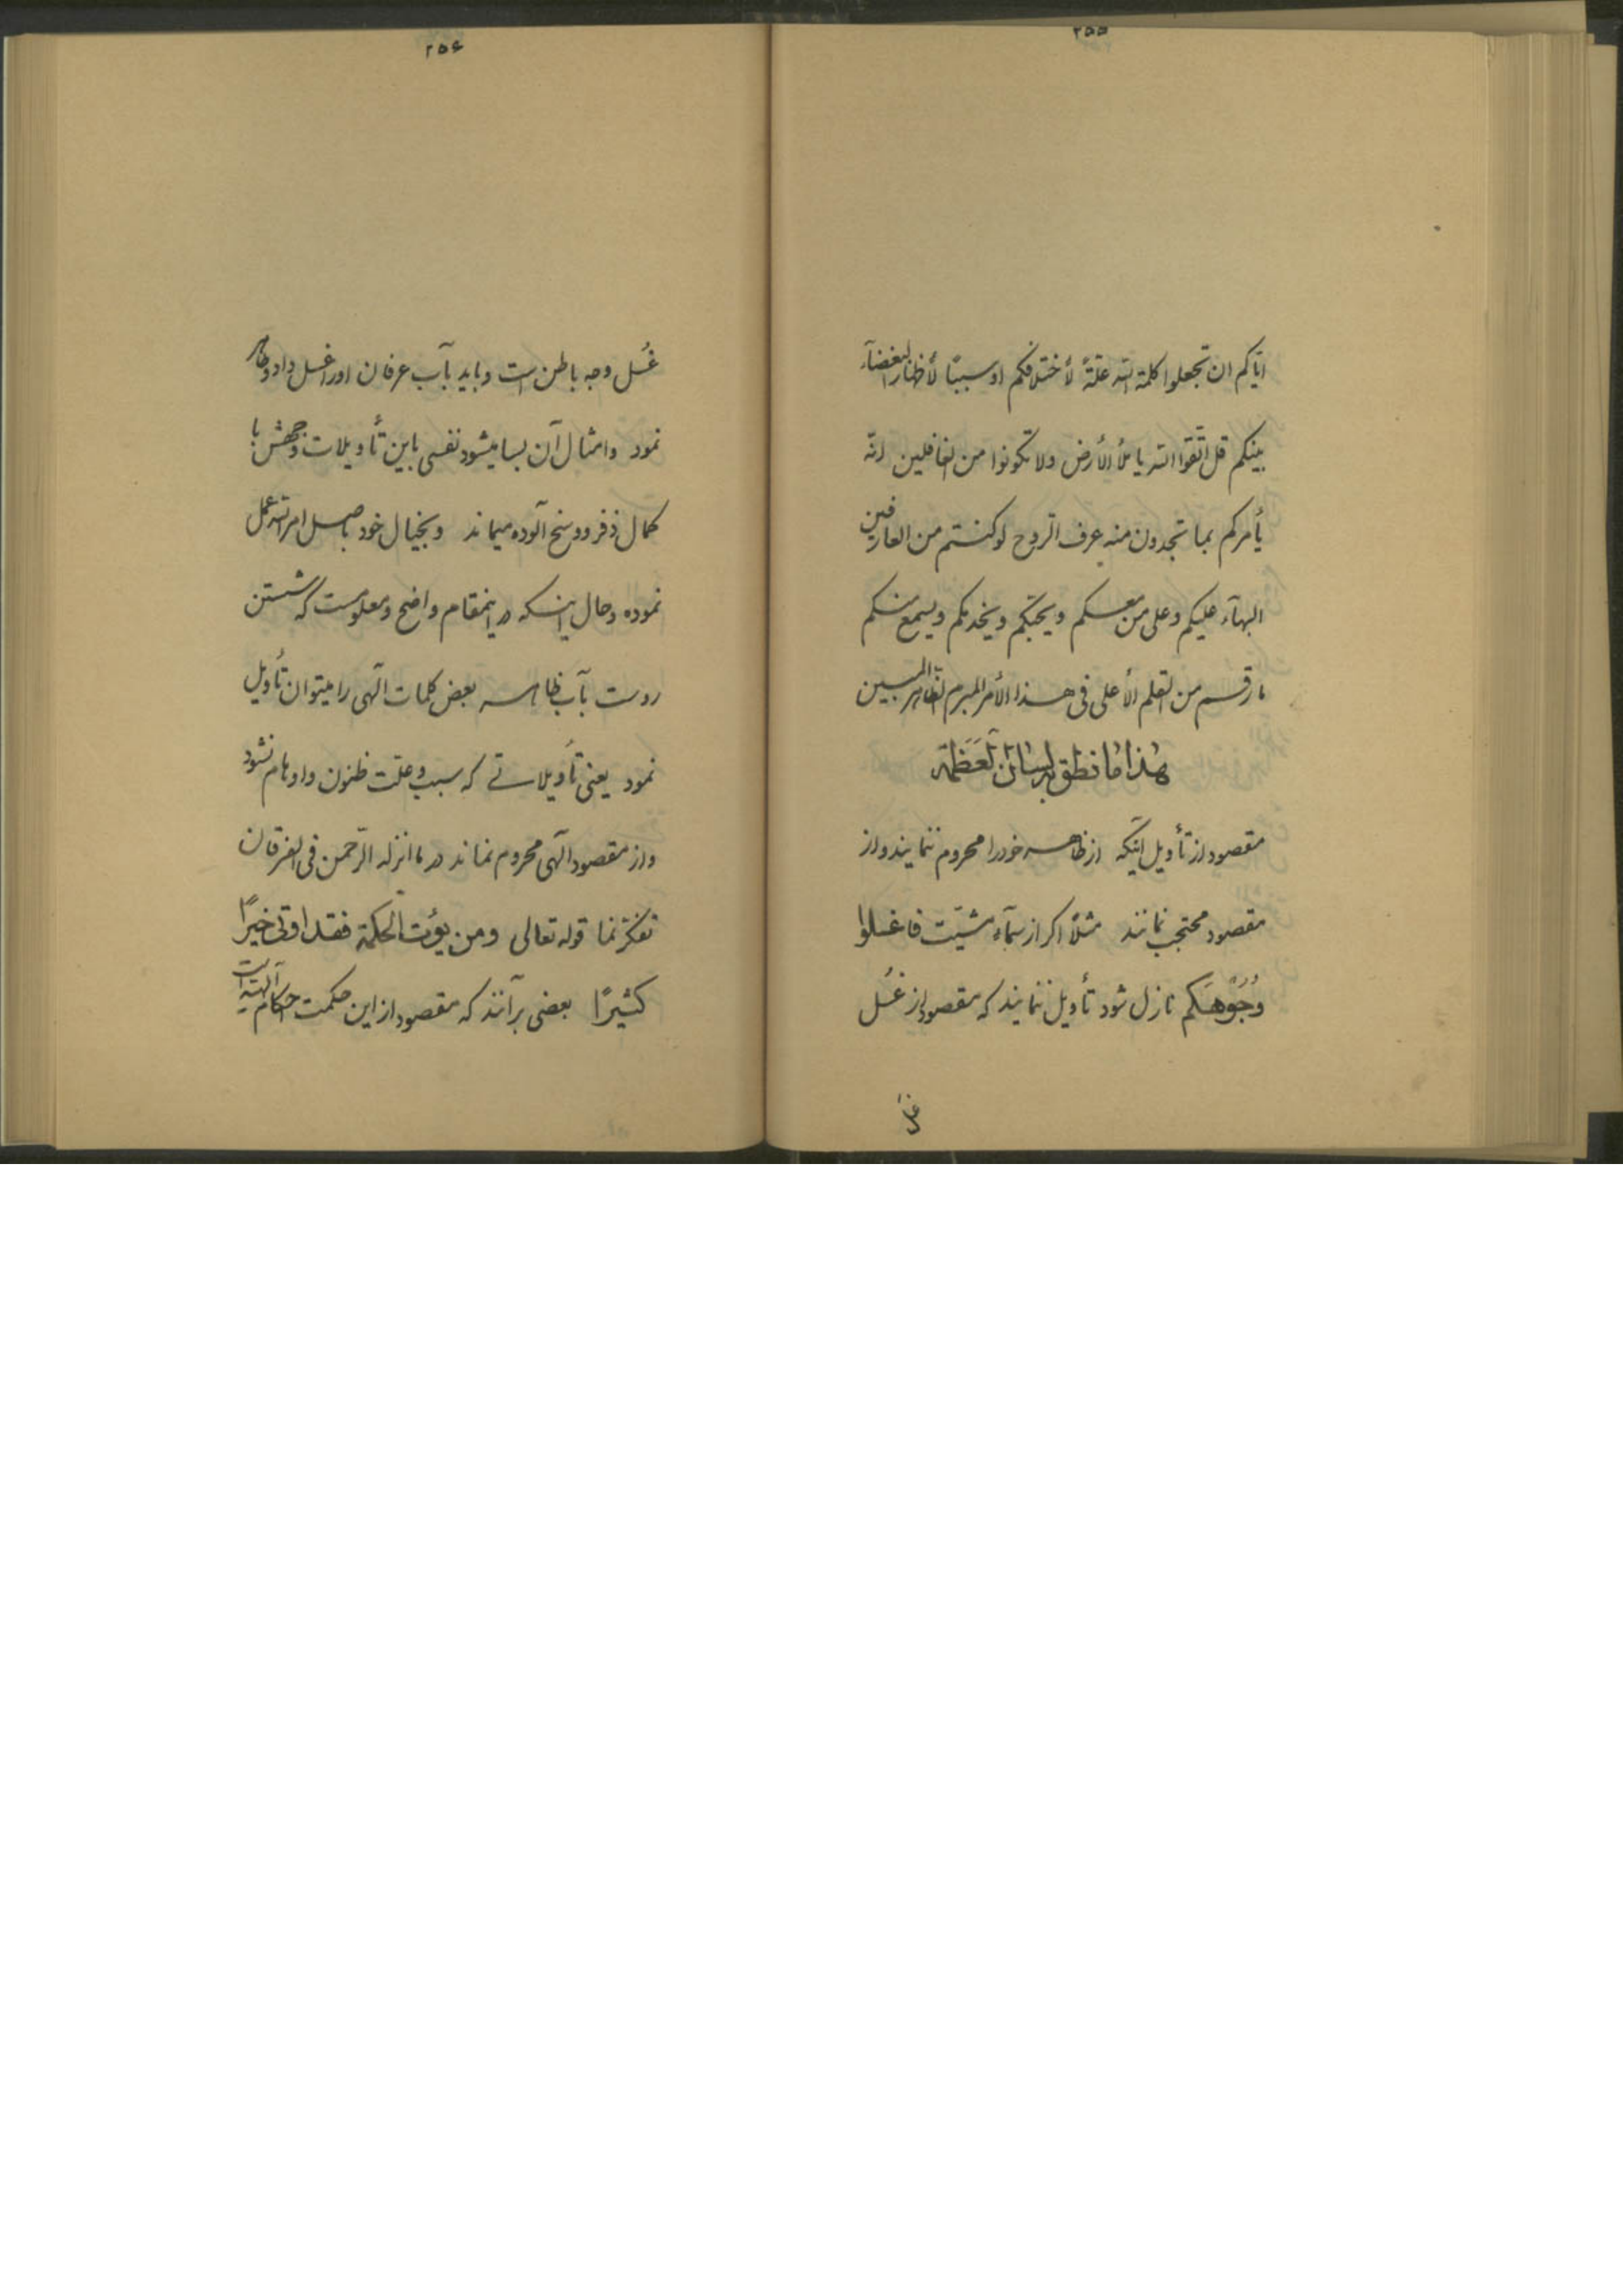 ۲۵۵
ایّاکم ان تجعلوا کلمة الله علّةً لأختلافکم او سببًا لأظهار البغضآء
بینکم قل اتّقوا الله یا ملأ الأرض و لا تکونوا من الغافلین انّه
یأمرکم بما تجدون منه عرف الرّوح لو کنتم من العارفین
البهآء علیکم و علی من معکم و یحبّکم و یخدمکم و یسمع منکم
ما رقم من القلم الأعلی فی هذا الأمر المبرم الظّاهر المبین
هذا ما نطق به لسان العظمة
مقصود از تأویل اینکه از ظاهر خود را محروم ننمایند و از
مقصود محتجب نمانند مثلاً اکر از سمآء مشیّت فاغسلوا
وُجُوْهَکم نازل شود تأویل ننمایند که مقصود از غُسل
غُسل
۲۵۶
غُسل وجه باطن است و باید بآب عرفان او را غسل داد و طاهر
نمود و امثال آن بسا میشود نفسی باین تأویلات وجهش با
کمال ذفر و وسخ آلوده میماند و بخیال خود باصل امر الله عمل
نموده و حال اینکه در اینمقام واضح و معلومست که شستن
روست بآب ظاهر بعض کلمات الهی را میتوان تأویل
نمود یعنی تأویلاتی که سبب و علّت ظنون و اوهام نشود
و از مقصود الهی محروم نماند در ما انزله الرّحمن فی الفرقان
تفکّر نما قوله تعالی و من یؤت الحکمة فقد اوتی خیرًا
کثیرًا بعضی برآنند که مقصود از این حکمت احکام الهیّه است